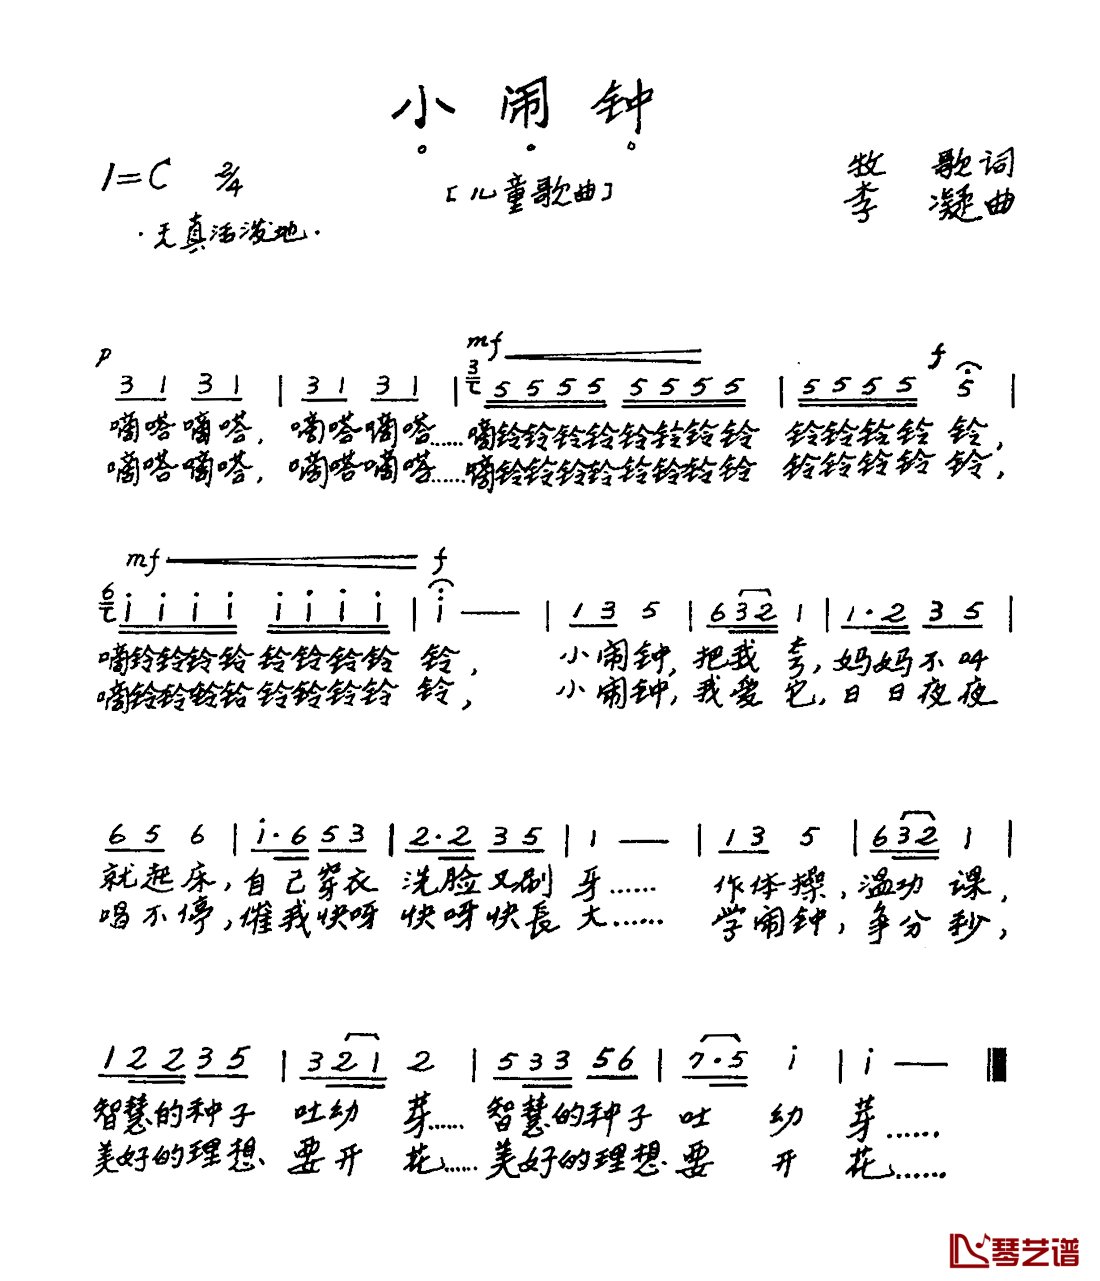 小闹钟
1=C 2/4
[儿童歌曲]
牧 歌词
李 凝曲
·天真活泼地·
p mf f
3 1 3 1 | 3 1 3 1 | 3 5 5 5 5 5 5 5 5 | 5 5 5 5 5 |
嘀嗒嘀嗒,嘀嗒嘀嗒……嘀铃铃铃铃铃铃铃铃 铃铃铃铃铃,
嘀嗒嘀嗒,嘀嗒嘀嗒……嘀铃铃铃铃铃铃铃铃 铃铃铃铃铃,
mf f
6 i i i i i i i i | i — | 1 3 5 | 6 3 2 1 | 1·2 3 5 |
嘀铃铃铃铃 铃铃铃铃 铃, 小闹钟,把我夸,妈妈不叫
嘀铃铃铃铃 铃铃铃铃 铃, 小闹钟,我爱它,日日夜夜
6 5 6 | i·6 5 3 | 2·2 3 5 | 1 — | 1 3 5 | 6 3 2 1 |
就起床,自己穿衣 洗脸又刷牙…… 作体操,温功课,
唱不停,催我快呀 快呀快長大…… 学闹钟,争分秒,
1 2 2 3 5 | 3 2 1 2 | 5 3 3 5 6 | 7·5 i | i — ‖
智慧的种子 吐幼芽……智慧的种子 吐 幼 芽……
美好的理想、要开花……美好的理想、要 开 花……
琴艺谱